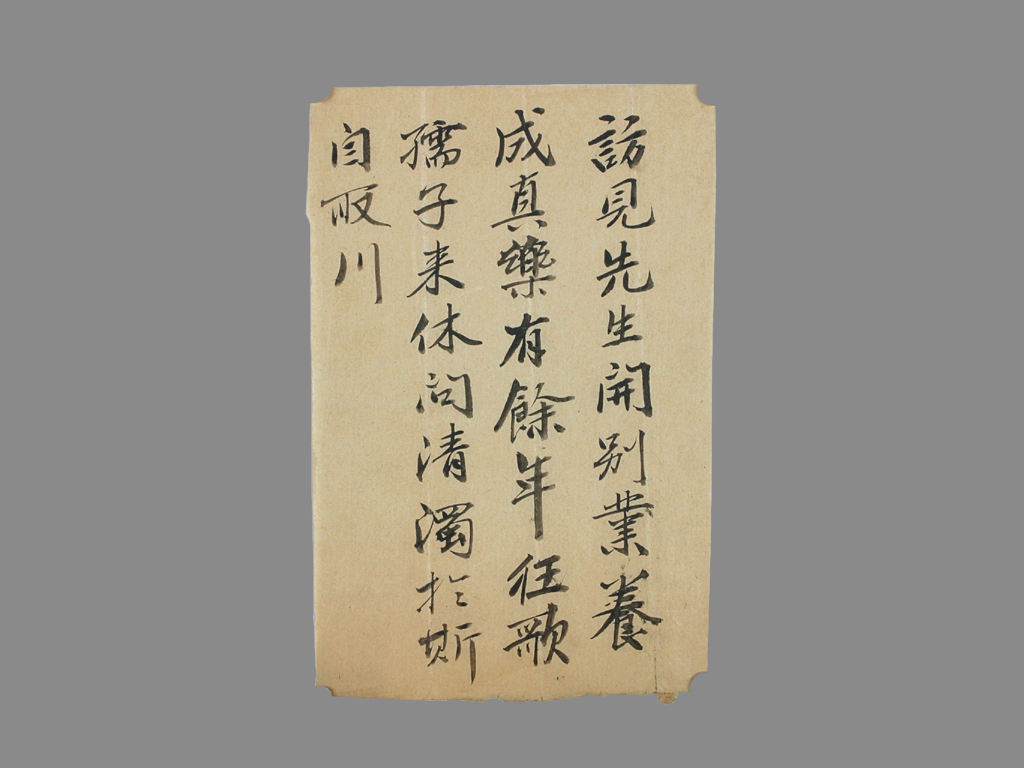 訪見先生開別業養
成真樂有餘年往歌
孺子来休問清濁於斯
自取川